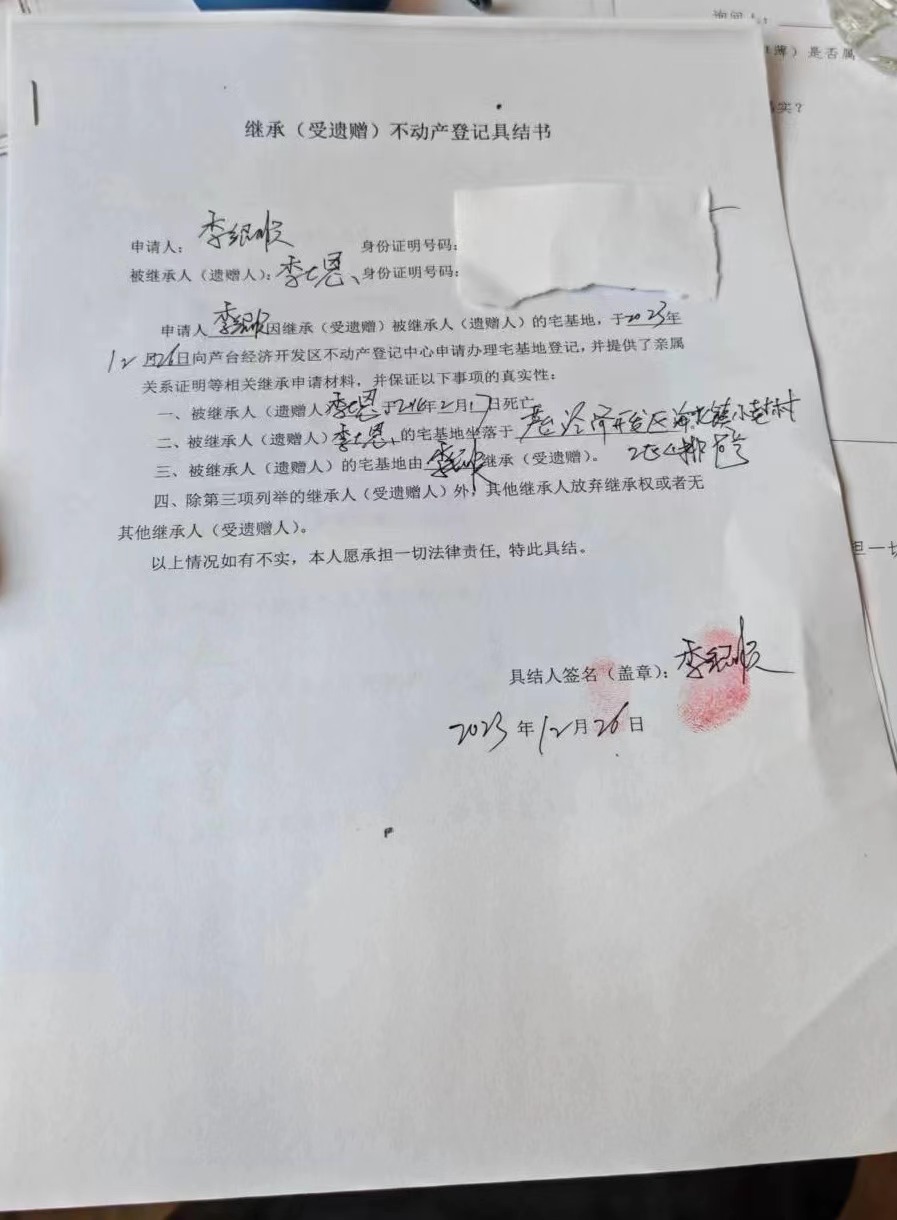 询问人:
簿）是否属
实?
继承（受遗赠）不动产登记具结书
申请人： 李绍顺 身份证明号码:
被继承人（遗赠人）：李士恩、身份证明号码:
申请人 因继承（受遗赠）被继承人（遗赠人）的宅基地，于2023年
12月26日向芦台经济开发区不动产登记中心申请办理宅基地登记，并提供了亲属
关系证明等相关继承申请材料，并保证以下事项的真实性：
一、被继承人（遗赠人 于 年2月17日死亡
二、被继承人（遗赠人） 的宅基地坐落于 芦台经济开发区海北镇小 村
三、被继承人（遗赠人）的宅基地由 继承（受遗赠）。
四、除第三项列举的继承人（受遗赠人）外，其他继承人放弃继承权或者无
其他继承人（受遗赠人）。
以上情况如有不实，本人愿承担一切法律责任, 特此具结。
担一切
具结人签名（盖章）：
2023 年 12 月 26 日